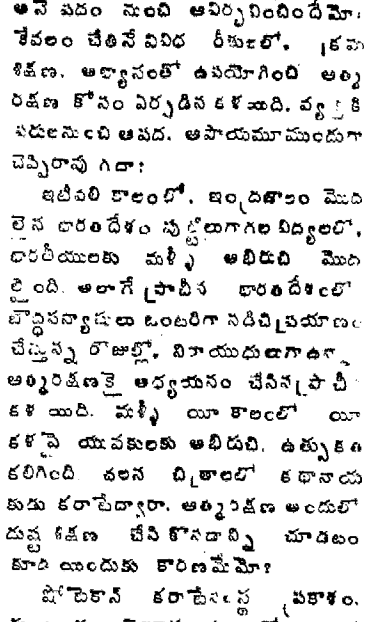 అనే పదం నుంచి ఆవిర్భవించిందేమో!
కేవలం చేతినే వివిధ రీతులలో, క్రమ
శిక్షణ, అభ్యాసంతో ఉపయోగించి ఆత్మ
రక్షణ కోసం ఏర్పడిన కళ యిది. వ్యక్తికి
ఆపద, అపాయమూ ముందుగా
చెప్పిరావు గదా!
ఇటీవలి కాలంలో, ఇంద్రజాలం మొద
లైన భారతదేశం పుట్టిలుగాగల విద్యలలో,
భారతీయులకు మళ్ళీ అభిరుచి మొద
లైంది. అలాగే ప్రాచీన భారతదేశంలో
బౌద్ధసన్యాసులు ఒంటరిగా నడిచి ప్రయాణం
చేస్తున్న రోజుల్లో, నిరాయుధులుగా ఉన్నా
ఆత్మరక్షణకై అధ్యయనం చేసిన ప్రాచీన
కళ యిది. మళ్ళీ యీ కాలంలో యీ
కళపై యువకులకు అభిరుచి, ఉత్సుకత
కలిగింది. చలన చిత్రాలలో కథానాయ
కుడు కరాటేద్వారా, ఆత్మరక్షణ అందులో
దుష్ట శిక్షణ చేసి కొనడాన్ని చూడటం
కూడ యిందుకు కారణమేమో?
షోటోకాన్ కరాటేసంస్థ ప్రకాశం,